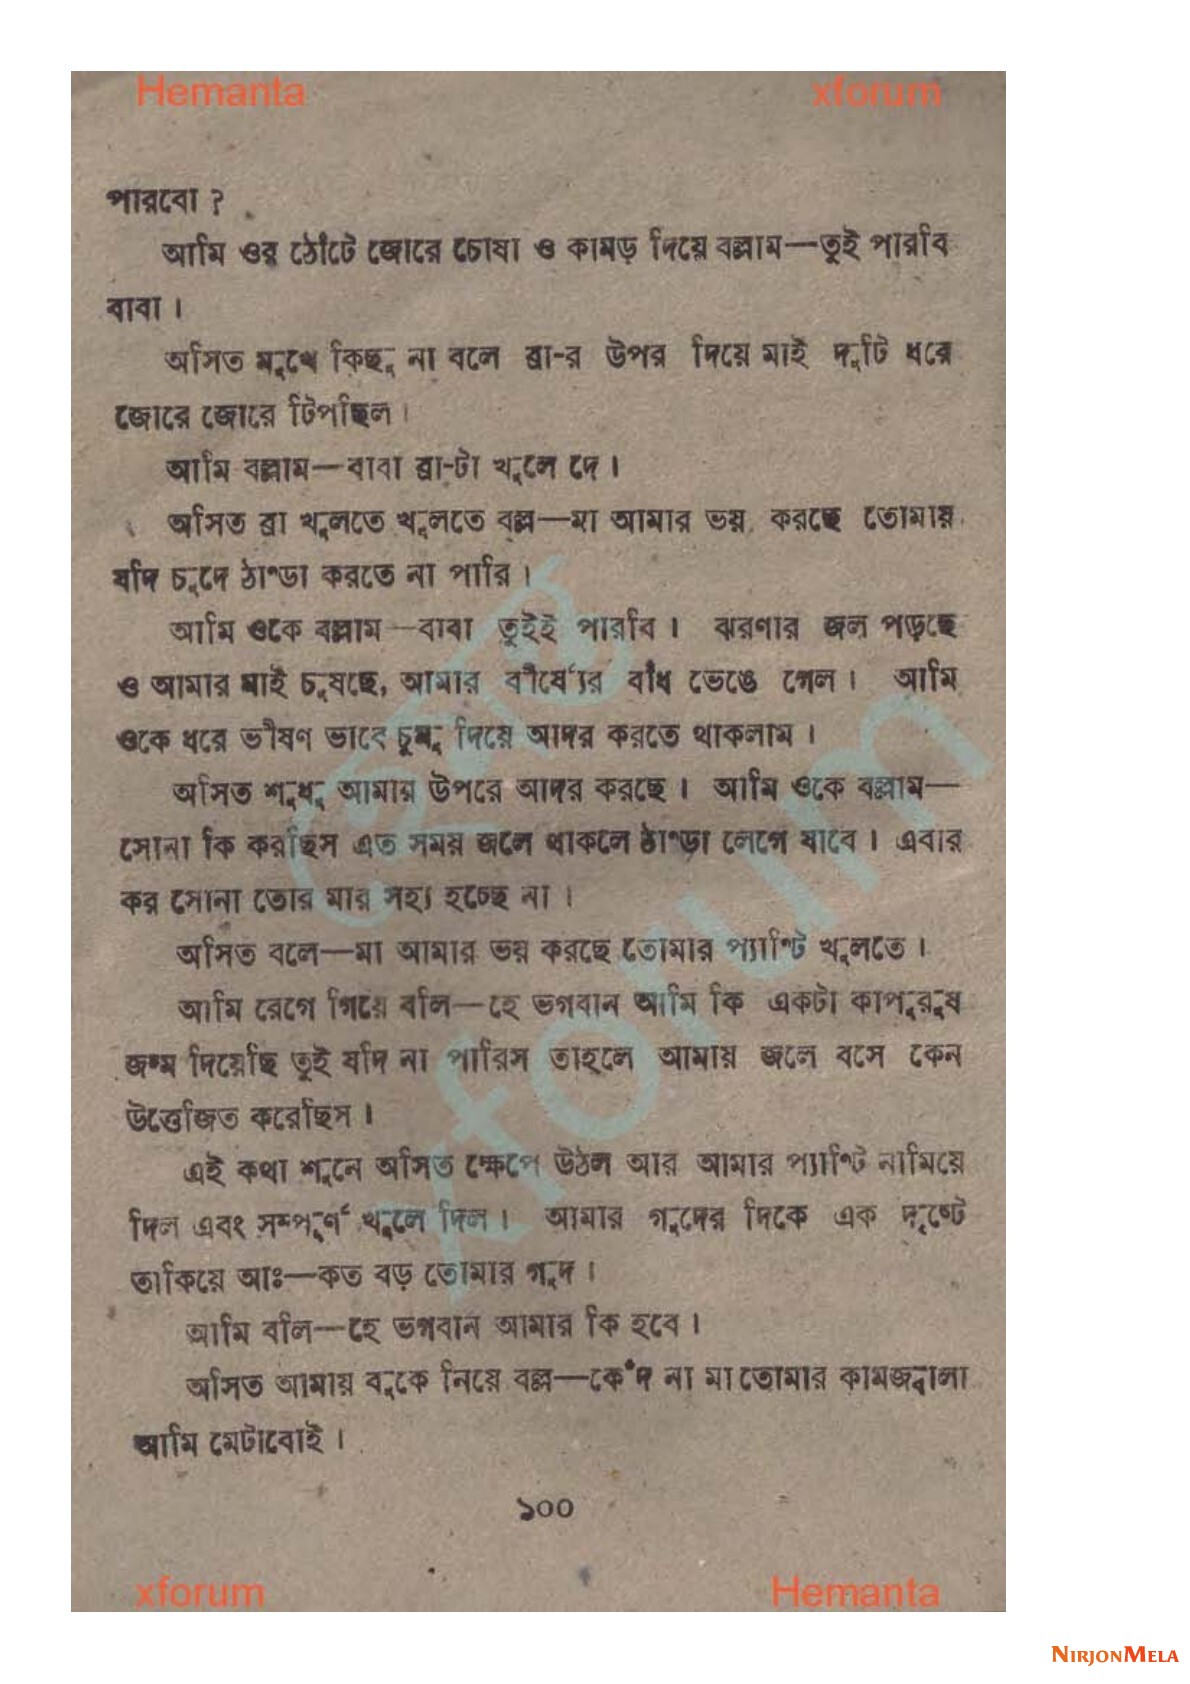 Hemanta xforum
পারবো ?
আমি ওর ঠোঁটে জোরে চোষা ও কামড় দিয়ে বল্লাম—তুই পারবি
বাবা ।
অসিত মুখে কিছু না বলে ব্রা-র উপর দিয়ে মাই দুটি ধরে
জোরে জোরে টিপছিল ।
আমি বল্লাম—বাবা ব্রা-টা খুলে দে ।
অসিত ব্রা খুলতে খুলতে বল্ল—মা আমার ভয় করছে তোমায়
যদি চুদে ঠাণ্ডা করতে না পারি ।
আমি ওকে বল্লাম—বাবা তুইই পারবি । ঝরণার জল পড়ছে
ও আমার মাই চুষছে, আমার বীর্য্যের বাঁধ ভেঙে গেল । আমি
ওকে ধরে ভীষণ ভাবে চুমু দিয়ে আদর করতে থাকলাম ।
অসিত শুধু আমায় উপরে আদর করছে । আমি ওকে বল্লাম—
সোনা কি করছিস এত সময় জলে থাকলে ঠাণ্ডা লেগে যাবে । এবার
কর সোনা তোর মার সহ্য হচ্ছে না ।
অসিত বলে—মা আমার ভয় করছে তোমার প্যাণ্টি খুলতে ।
আমি রেগে গিয়ে বলি—হে ভগবান আমি কি একটা কাপুরুষ
জন্ম দিয়েছি তুই যদি না পারিস তাহলে আমায় জলে বসে কেন
উত্তেজিত করেছিস ।
এই কথা শুনে অসিত ক্ষেপে উঠল আর আমার প্যাণ্টি নামিয়ে
দিল এবং সম্পূর্ণ খুলে দিল । আমার গুদের দিকে এক দৃষ্টে
তাকিয়ে আঃ—কত বড় তোমার গুদ ।
আমি বলি—হে ভগবান আমার কি হবে ।
অসিত আমায় বুকে নিয়ে বল্ল—কেঁদ না মা তোমার কামজ্বালা
আমি মেটাবোই ।
১০০
xforum Hemanta
xforum
NIRJONMELA